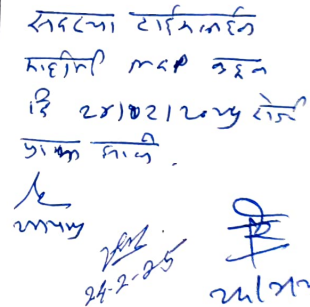 सदरच्या टाईमलाईन
माहीती map कडून
दि २४/०२/२०२५ रोजी
प्राप्त झाली.
24-2-25